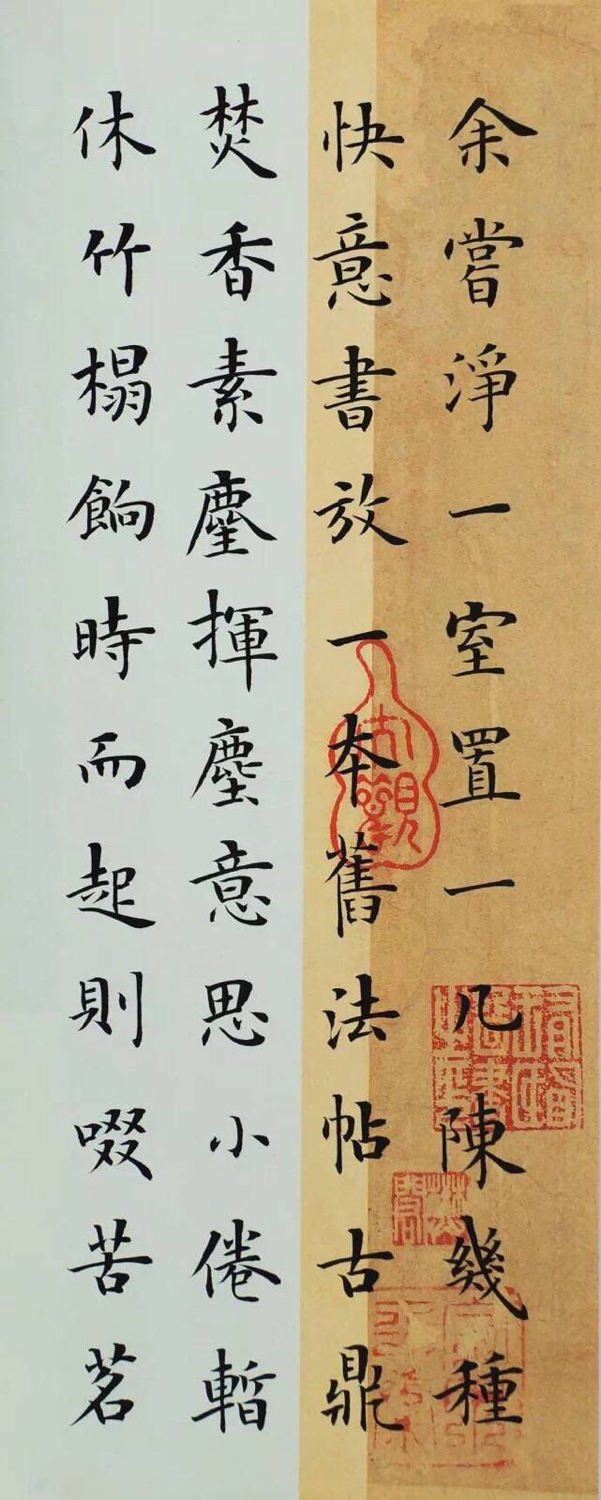 余嘗淨一室置一几陳幾種
快意書放一本舊法帖古鼎
焚香素麈揮塵意思小倦暫
休竹榻餉時而起則啜苦茗